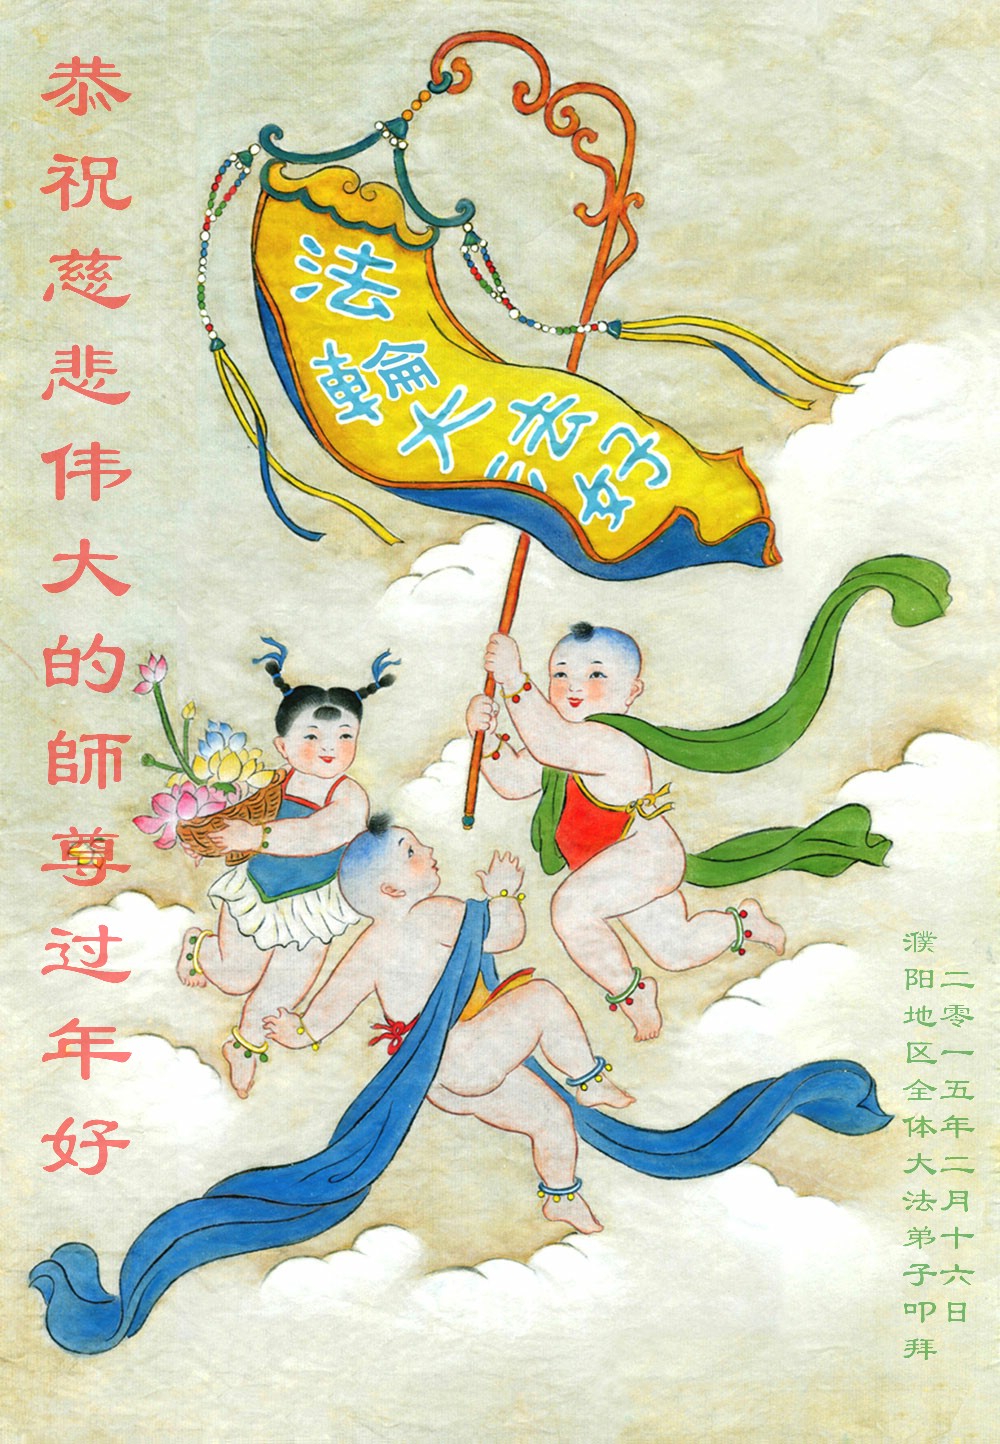 恭祝慈悲伟大的師尊过年好
法輪大法好
濮阳地区全体大法弟子叩拜
二零一五年二月十六日